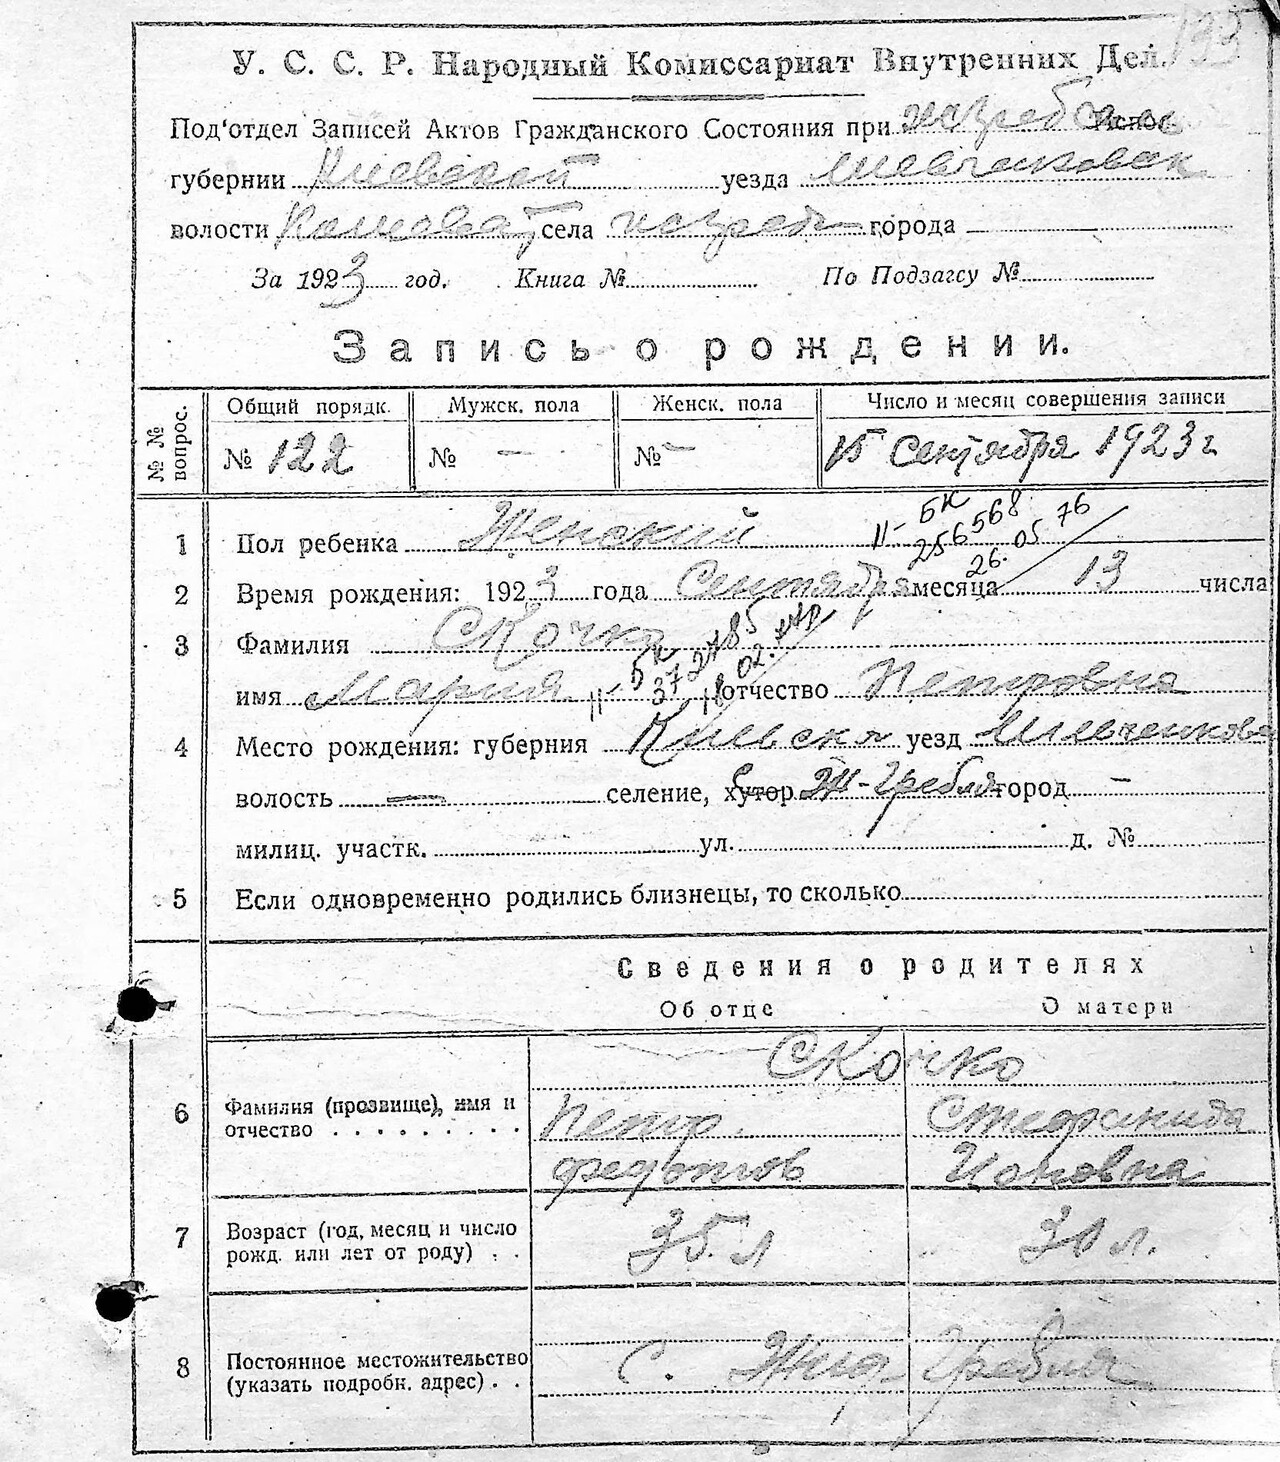 133
У. С. С. Р. Народный Комиссариат Внутренних Дел.
Под'отдел Записей Актов Гражданского Состояния при
губернии Киевской уезда Шевченковск
волости села города —
За 1923 год. Книга № По Подзагсу №
Запись о рождении.
№ № вопрос. Общий порядк. Мужск. пола Женск. пола Число и месяц совершения записи
№ 122 № — № — 15 Сентября 1923 г
1 Пол ребенка Женский
II- БК 256568 26.05 76
2 Время рождения: 1923 года Сентября месяца 13 числа
3 Фамилия Скочко
имя Мария отчество Петровна
4 Место рождения: губерния Киевска уезд Шевченково
волость — селение, хутор с Ж-Гребля город —
милиц. участк. ул. д. №
5 Если одновременно родились близнецы, то сколько
Сведения о родителях
Об отце О матери
Скочко
6 Фамилия (прозвище), имя и отчество Петр Стефанида
Федотов
7 Возраст (год, месяц и число рожд. или лет от роду) 35 л 30 л.
8 Постоянное местожительство (указать подробн. адрес) С. Жид-Гребля